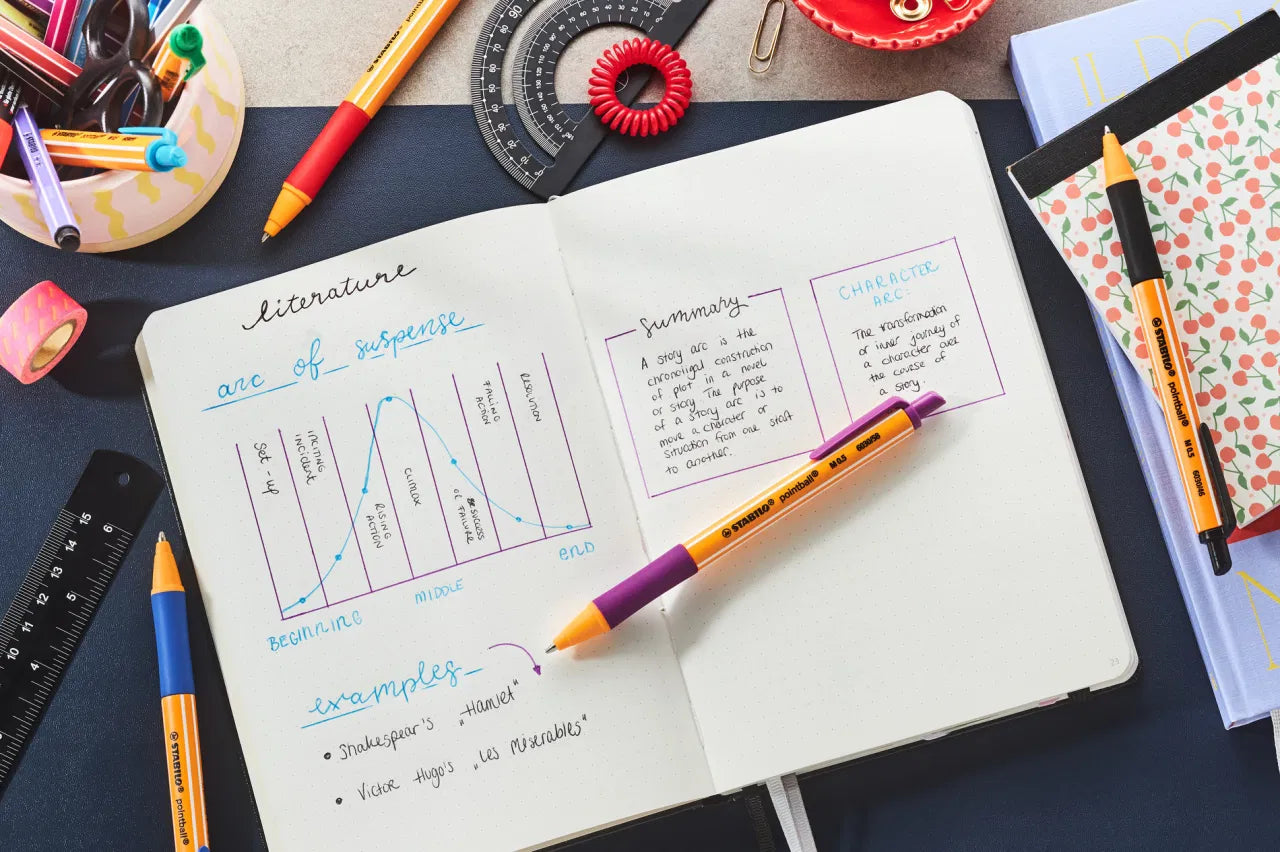 literature
arc of suspense
Set-up
INCITING
INCIDENT
RISING
ACTION
CLIMAX
SUCCESS
OF FAILURE
FALLING
ACTION
RESOLUTION
BEGINNING
MIDDLE
END
examples
• Shakespear's „Hamlet"
• Victor Hugo's „Les Miserables"
Summary
A story arc is the
chronoligal construction
of plot in a novel
or story. The purpose
of a story arc is to
move a charater or
situation from one start
to another.
CHARACTER
ARC:
The transformation
or inner journey of
a character over
the course of
a story.
23
STABILO® pointball® M 0.5 6030/58
STABILO® pointball® M 0.5 6030/46
STABILO® pointball®
STABILO
15
14
13
12
11
10
6
5
4